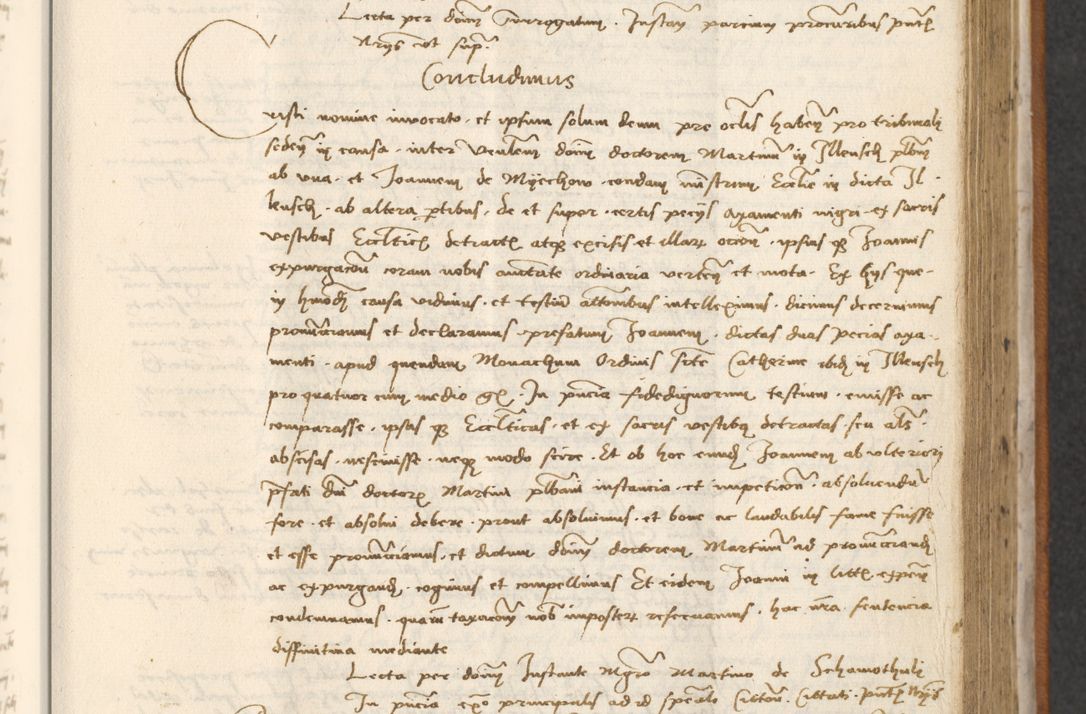 Lecta per dnm Surrogatum. Instan parcium procuratoribus pntibus
Nrys ut supra
Concludimus
Cristi nomine invocato et ipsum solum deum pre oclis habens pro tribunali
sedens in causa inter Venlem dnm doctorem Martinum in Ilkusch plbnm
ab una et Joannem de Myechow condam mistrum Eccle in dicta Il
kusch ab altera ptibus de et super certis pecys axamenti nigri ex sacris
vestibus Eccleticis detractis atque excisis et illarum occōne ipsius que Joannis
expurgacōne coram nobis auctate ordinaria verten et mota Ex hys que
in hmōi causa vidimus et testiu attonibus intelleximus dicimus decernimus
pronucciamus et declaramus prefatum Joannem dictas duas pecias axa
menti apud quendam Monachum Ordinis scte Catherine ibid in Ilkusch
pro quatuor cum medio gr In pncia fidedignorum testium emisse ac
comparasse ipsas que Eccleticas et ex sacris vestibus detractas seu als
abscisas nescivisse neque modo scire Et ob hoc eundem Joannem ab ulteriori
pfati dni doctoris Martini plbani instancia et impeticōe absolvendum
fore et absolvi debere prout absolvimus et bone ac laudabilis fame fuisse
et esse pronucciamus et dictum dnm doctorem Martinum ad pronucciandum
ac expurgandum cogimus et compellimus Et eidem Joanni in littis expen
condemnamus quarum taxacōem nobis imposterum reservamus hac nra sentencia
diffinitiva mediante
Lecta per dnm Instante Mgro Martino de Schamothuli
In pncia exo principalis ad id spealr Citton Cittati pntibus Nrys